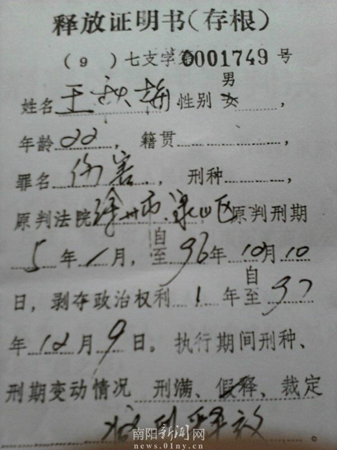 释放证明书(存根)
(9)七支字第0001749号
姓名王秋梅性别男女,
年龄22,籍贯,
罪名伤害,刑种,
原判法院徐州市泉山区原判刑期
5年1月,自至96年10月10
日,剥夺政治权利1年自至97
年12月9日。执行期间刑种、
刑期变动情况 刑满、假释、裁定
释放
南阳新闻网
www.01ny.cn